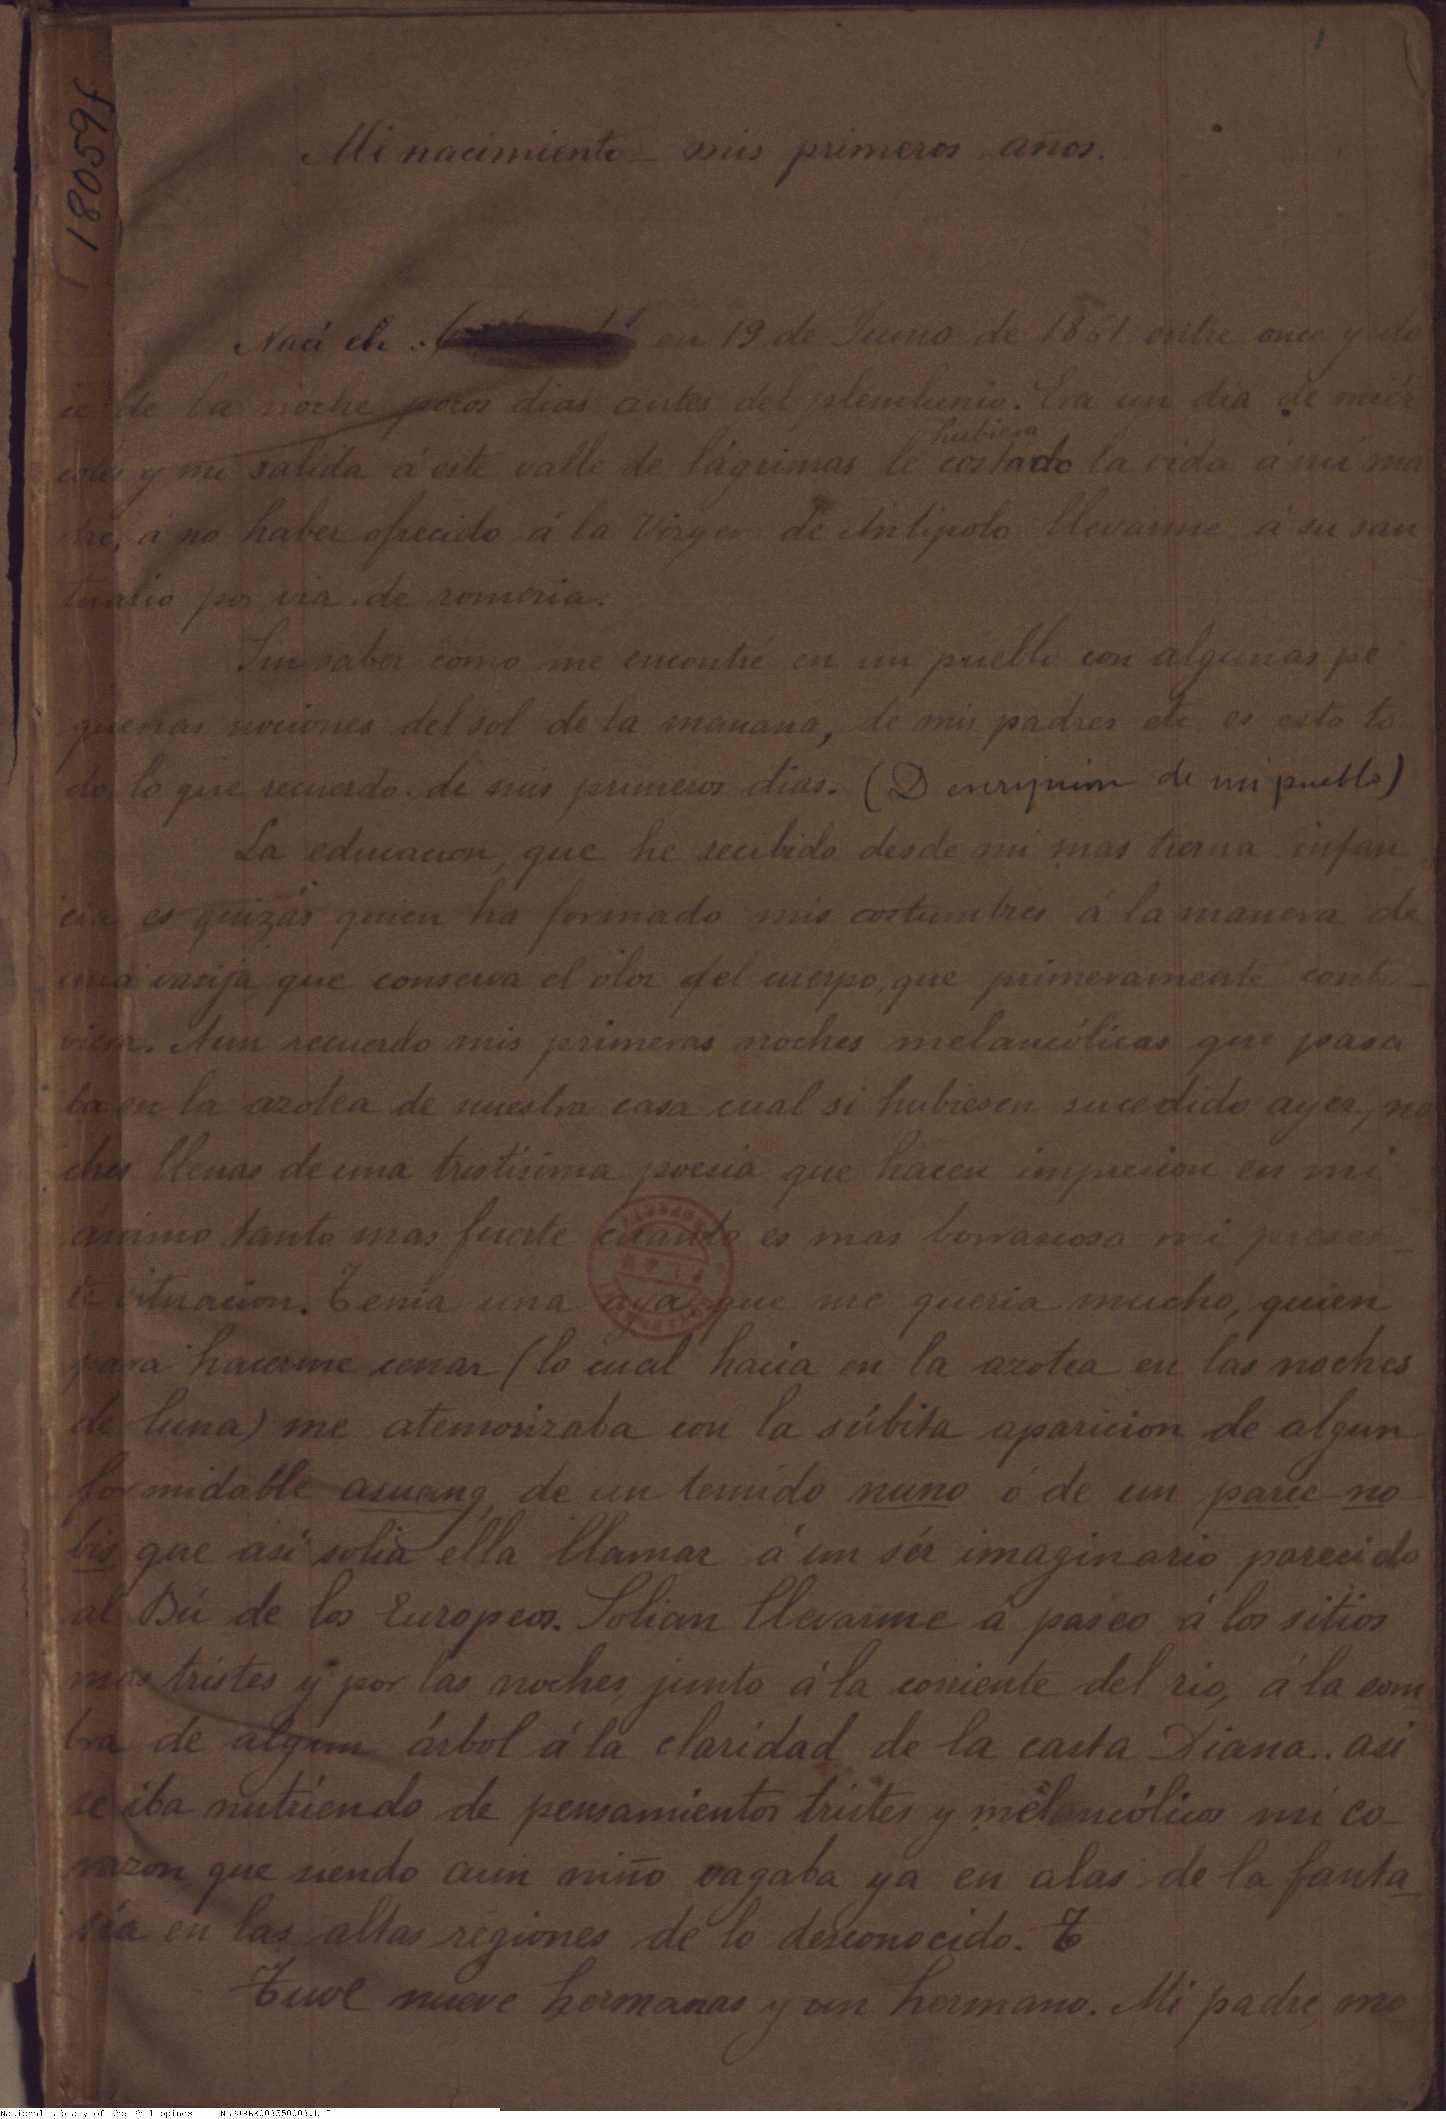 18059f
1
Mi nacimiento – mis primeros años.
Nací en en 19 de Junio de 1861 entre once y do
ce de la noche pocos dias antes del plenilunio. Era un dia de miér
coles y mi salida á este valle de lágrimas le hubiera costado la vida á mi ma
dre, á no haber ofrecido á la Virgen de Antipolo llevarme á su san
tuario por via de romeria.
Sin saber como me encontré en un pueblo con algunas pe
queñas nociones del sol de la mañana, de mis padres etc es esto to
do lo que recuerdo de mis primeros dias. (Descripcion de mi pueblo)
La educacion, que he recibido desde mi mas tierna infan
cia es quizás quien ha formado mis costumbres á la manera de
una vasija que conserva el olor del cuerpo, que primeramente contu-
viera. Aun recuerdo mis primeras noches melancólicas que pasa
ba en la azotea de nuestra casa cual si hubiesen sucedido ayer, no
ches llenas de una tristísima poesia que hacen impresion en mi
ánimo tanto mas fuerte cuanto es mas borrascosa mi presen-
te situacion. Tenia una aya que me queria mucho, quien
para hacerme cenar (lo cual hacia en la azotea en las noches
de luna) me atemorizaba con la súbita aparicion de algun
formidable asuang, de un temido nuno ó de un parce-no-
bis que asi solia ella llamar á un sér imaginario parecido
al Bú de los Europeos. Solian llevarme á paseo á los sitios
mas tristes y por las noches, junto á la corriente del rio, á la som
bra de algun árbol á la claridad de la casta Diana.. asi
se iba nutriendo de pensamientos tristes y melancólicos mi co-
razon que siendo aun niño vagaba ya en alas de la fanta-
sía en las altas regiones de lo desconocido. T
Tuve nueve hermanas y un hermano. Mi padre, mo
National Library of the Philippines